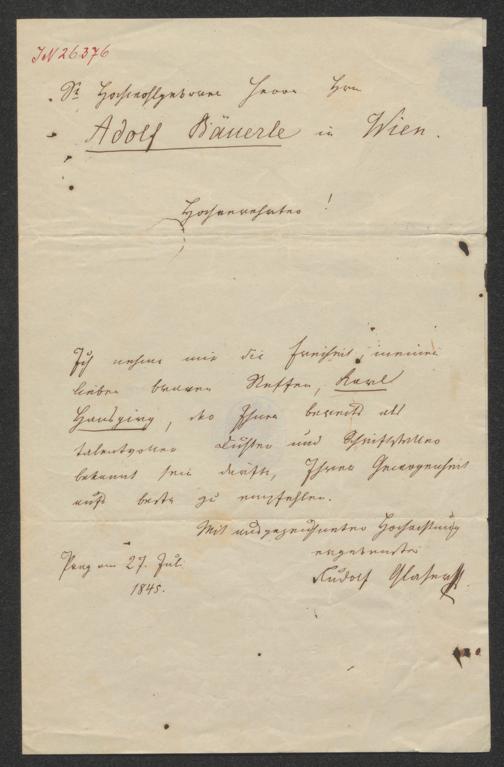 IN 26376
Sr Hochwohlgeboren Herrn Hrn
Adolf Bäuerle in Wien.
Hochverehrter!
Ich nehme mir die Freiheit, meinen
lieben braven Neffen, Karl
Hansgirg, der Ihnen bereits als
talentvoller Dichter und Schriftsteller
bekannt sein dürfte, Ihrer Gewogenheit
aufs beste zu empfehlen.
Mit ausgezeichneter Hochachtung
ergebenster
Prag am 27. Jul.
1845.
Rudolf Glaser